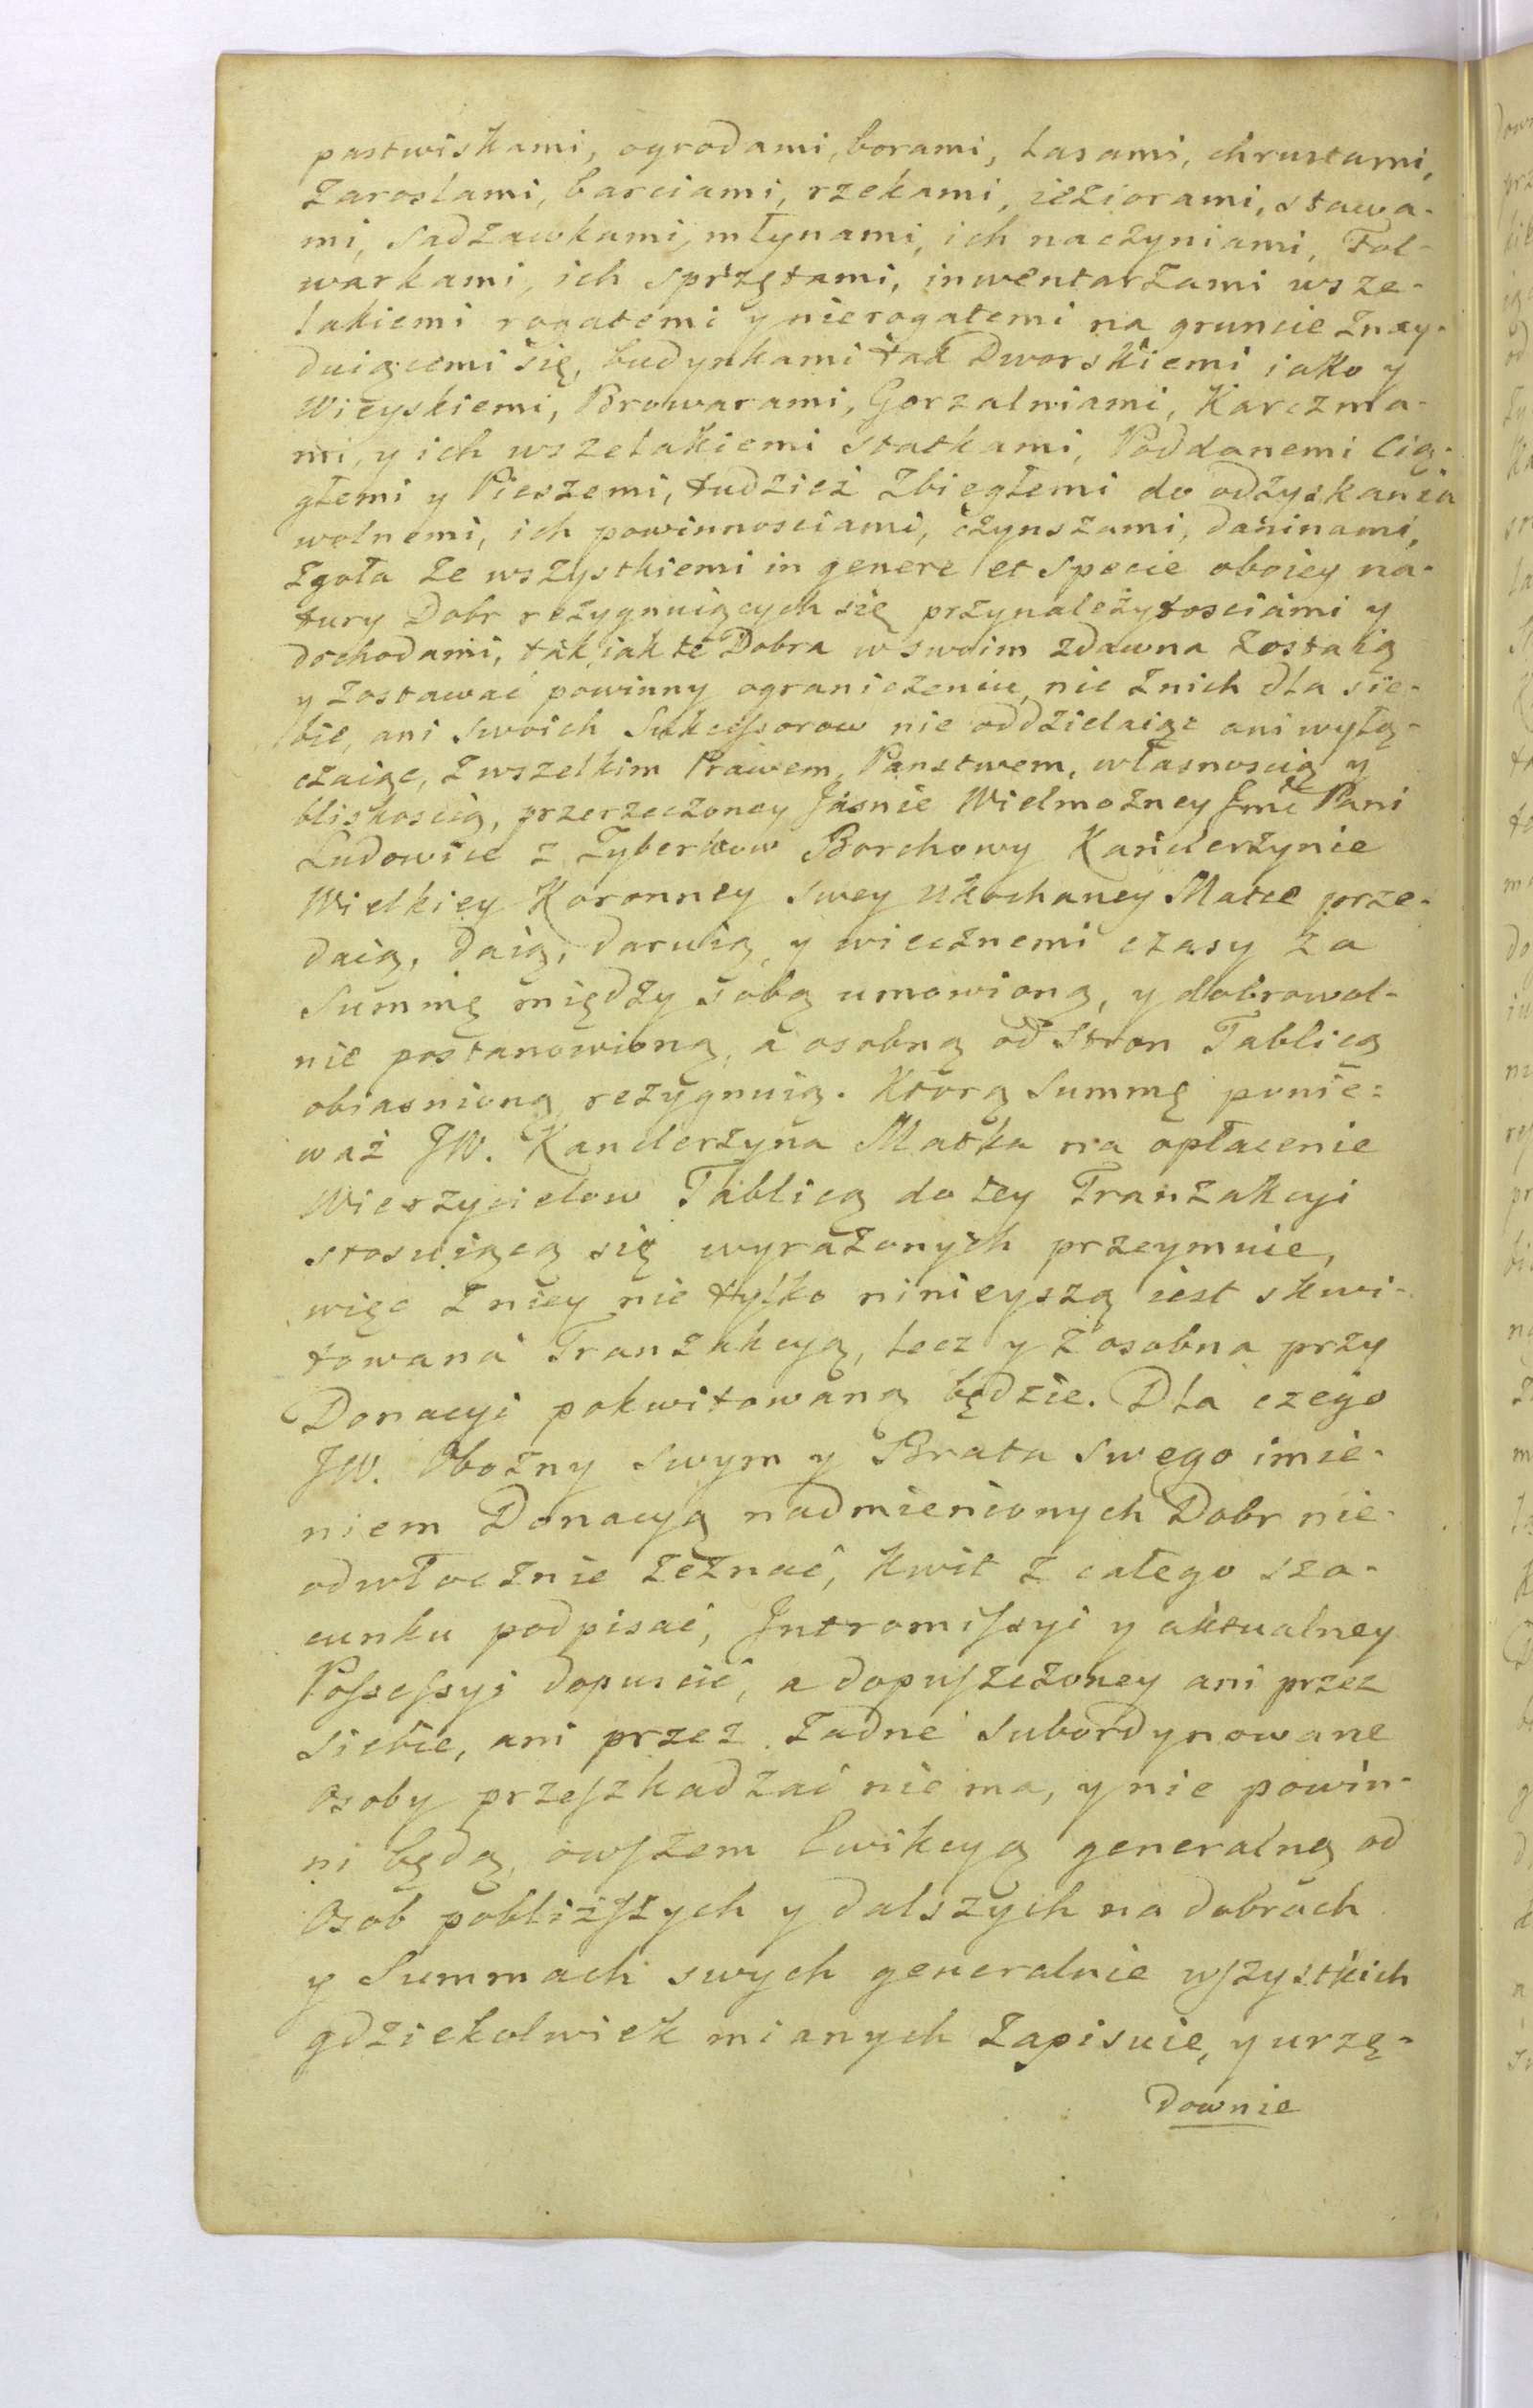 pastwiskami, ogrodami, borami, lasami, chrustami,
zaroslami, barciami, rzekami, ieziorami, stawa-
mi, sadzawkami, młynami, ich naczyniami, Fol-
warkami, ich sprzętami, inwentarzami wsze-
lakiemi rogatemi y nierogatemi na gruncie znay-
duiącemi się, budynkami tak Dworskiemi iako y
Wieyskiemi, Browarami, Gorzalniami, Karczma-
mi, y ich wszelakiemi statkami, Poddanemi Cią-
głemi y Pieszemi, tudzież zbiegłemi do odzyskania
wolnemi, ich powinnosciami, czynszami, daninami,
zgoła ze wszystkiemi in genere et specie oboiey na-
tury Dobr rezygnuiących się przynależytosciami y
dochodami, tak iak te Dobra w swoim zdawna zostaią
y zostawać powinny ograniczeniu, nic z nich dla sie-
bie, ani swoich Sukcessorow nie oddzielaiąc ani wyłą-
czaiąc, z wszelkim Prawem, Panstwem, własnoscią y
bliskoscią, przerzeczoney Jasnie Wielmozney Jmć Pani
Ludowice z Zyberkow Borchowy Kanclerzynie
Wielkiey Koronney swey ukochaney Matce prze-
daią, daią, daruią, y wiecznemi czasy za
Summę między sobą umowioną, y dobrowol-
nie postanowioną, a osobną od Stron Tablicą
obiasnioną rezygnuią. Ktorą Summę ponie-
waż JW. Kanclerzyna Matka na opłacenie
Wierzycielow Tablicą do tey Tranzakcyi
stosuiącą się wyrażonych przeymuie,
więc z niey nie tylko ninieyszą iest skwi-
towana Tranzakcyą, lecz y z osobna przy
Donacyi pokwitowaną będzie. Dla czego
JW. Obozny swym y Brata swego imie-
niem Donacyą nadmienionych Dobr nie-
odwłocznie zeznać, kwit z całego sza-
cunku podpisać, Intromissyi y aktualney
Possessyi dopuscić, a dopuszczoney ani przez
siebie, ani przez żadne subordynowane
osoby przeszkadzać nie ma, y nie powin-
ni będą, owszem Ewikcyą generalną od
Osob pobliższych y dalszych na dobrach
y Summach swych generalnie wszystkich
gdziekolwiek mianych zapisuie, y urzę-
downie